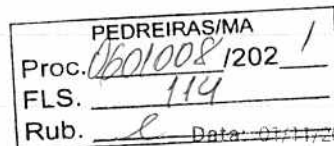 PEDREIRAS/MA
Proc. 0601008/2021
FLS. 114
Rub.
Data: 01/11/20